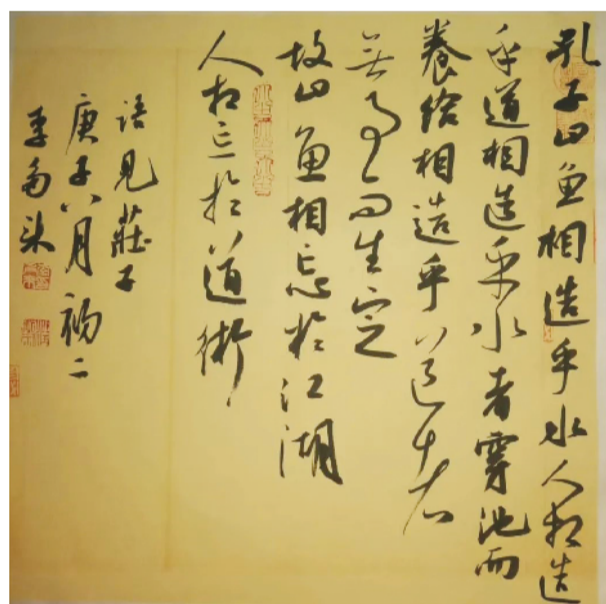 孔子曰魚相造乎水人相造
乎道相造乎水者穿池而
養给相造乎道者
無事而生定
故曰魚相忘於江湖
人相忘於道術
语見莊子
庚子八月初二